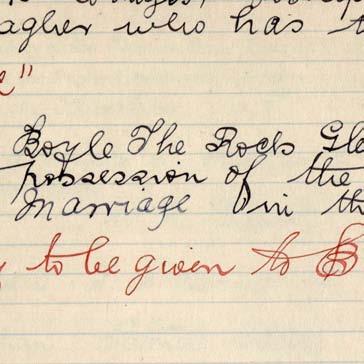 agher who has t
"
Boyle The Rock Gle
possession of the
Marriage in th
to be given to B